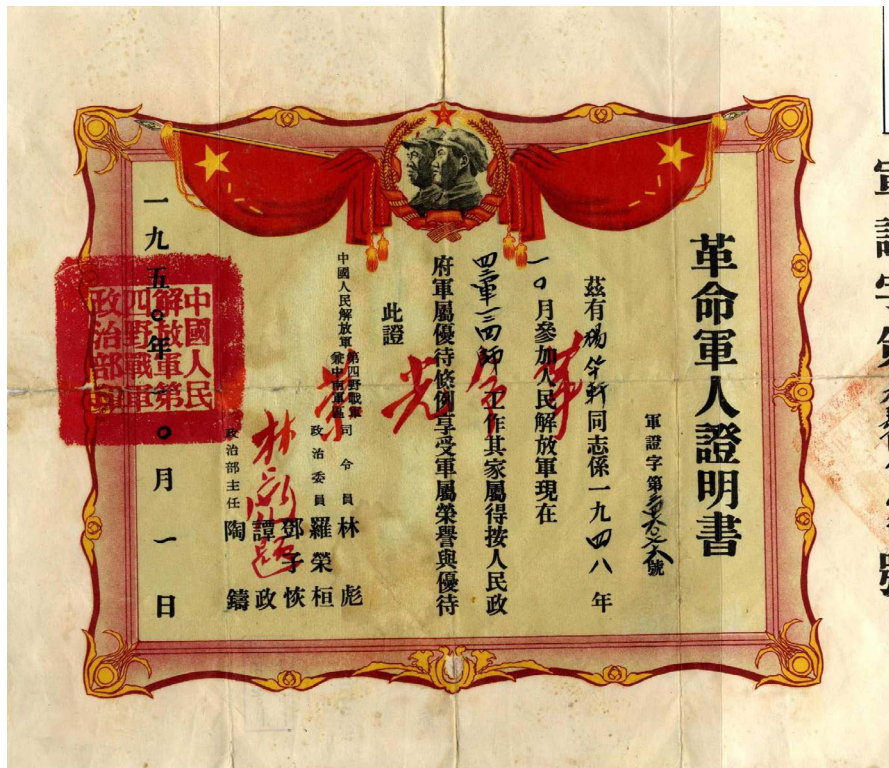 革命軍人證明書
軍證字第號
茲有楊笑軒同志係一九四八年
一〇月參加人民解放軍現在
四三軍一二四師工作其家屬得按人民政
府軍屬優待條例享受軍屬榮譽與優待
此證
革命光榮
林彪題
中國人民解放軍第四野戰軍兼中南軍區
司令員 林彪
政治委員 羅榮桓
鄧子恢
譚政
政治部主任 陶鑄
一九五〇年一〇月一日
中國人民
解放軍第
四野戰軍
政治部印
軍證字第
號